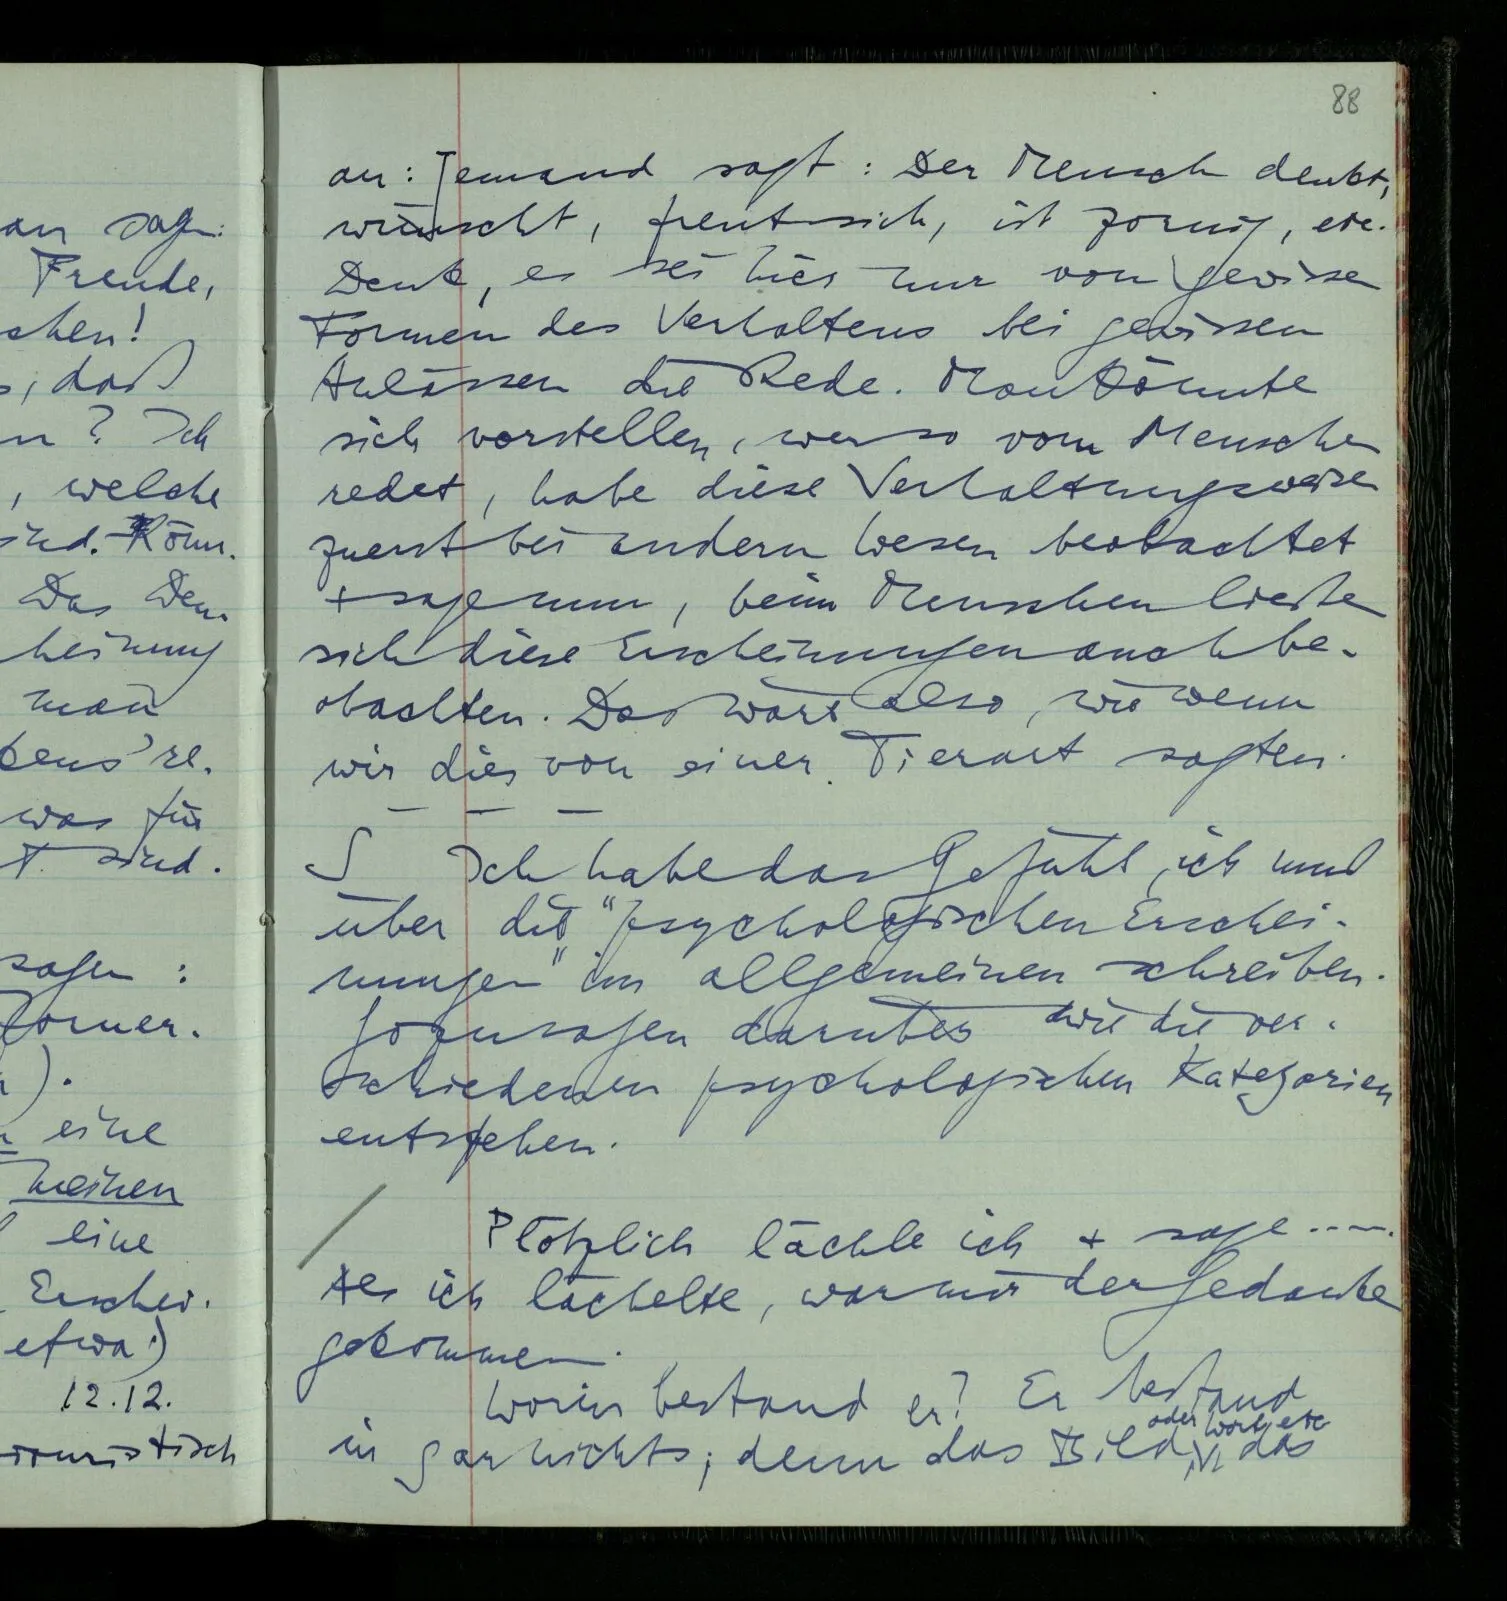 88
an sagen:
Freude,
chen!
s, daß
n? Ich
, welche
sind. Könn-
Das Den-
heinung
man
bens' re-
was für
t sind.
sagen:
Zorner.
n).
n eine
meinen
eine
Erschei-
etwa.)
12.12.
ouristisch
an: Jemand sagt: Der Mensch denkt,
wünscht, freut sich, ist zornig, etc.
Denk, es sei hier nur von gewissen
Formen des Verhaltens bei gewissen
Anlässen die Rede. Man könnte
sich vorstellen, wer so vom Menschen
redet, habe diese Verhaltungsweisen
zuerst bei andern Wesen beobachtet
+ sage nun, beim Menschen ließen
sich diese Erscheinungen auch be-
obachten. Das wäre also, wie wenn
wir dies von einer Tierart sagten.
– – –
S Ich habe das Gefühl, ich muß
über die "psychologischen Erschei-
nungen" im allgemeinen schreiben.
Sozusagen darüber wie die ver-
schiedenen psychologischen Kategorien
entstehen.
/ Plötzlich lächle ich + sage .....
Als ich lächelte, war mir der Gedanke
gekommen.
Worin bestand er? Er bestand
in garnichts; denn das Bild, oder Wort, etc das